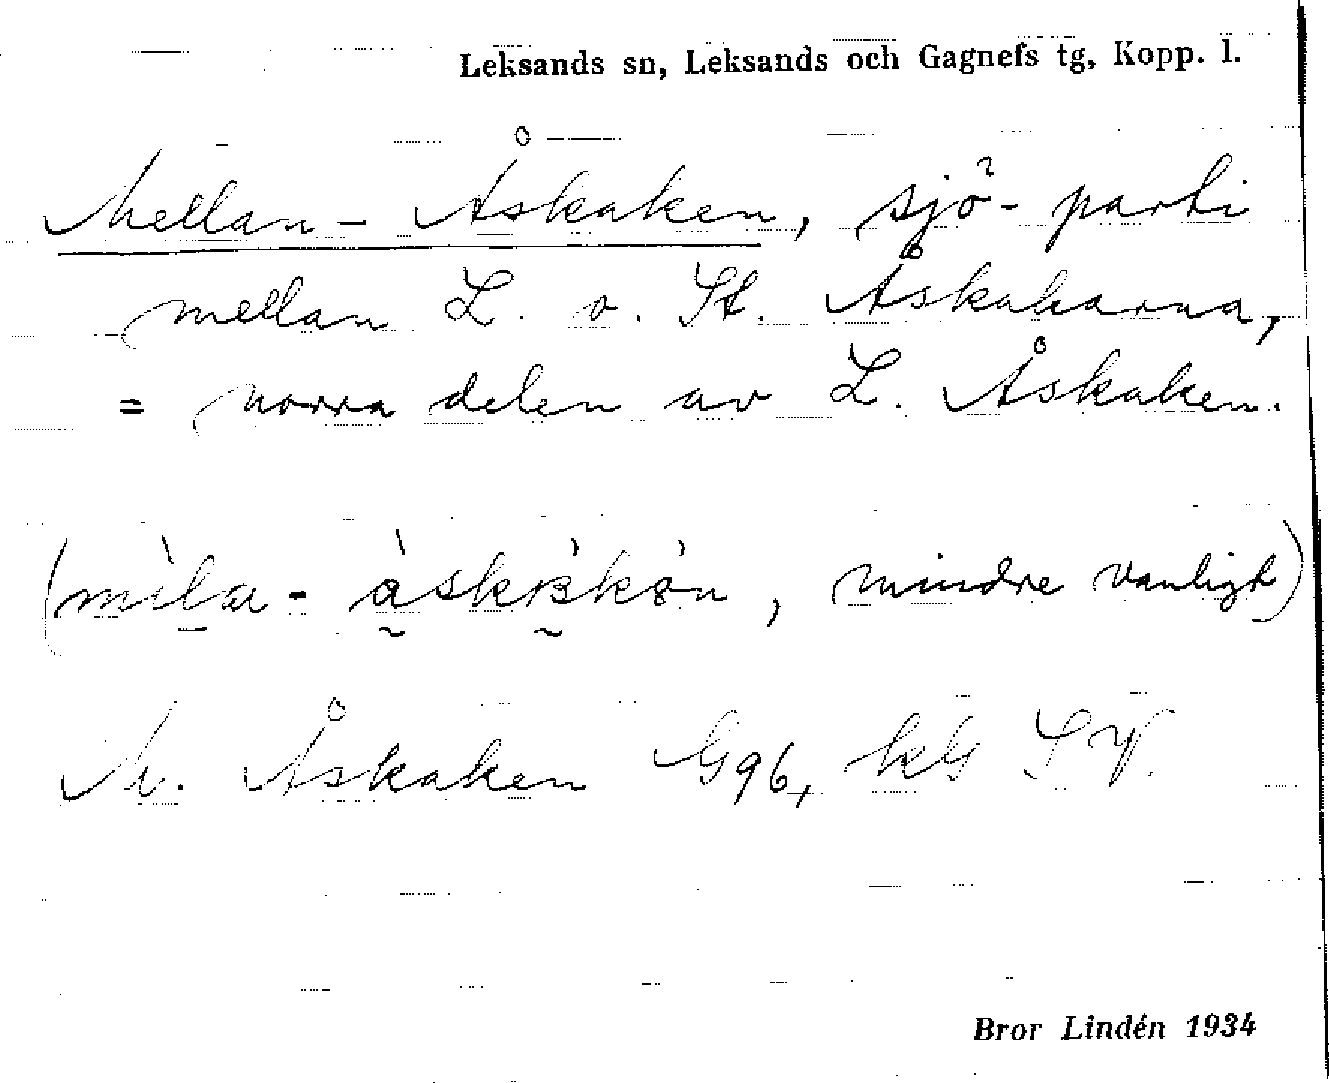 Leksands sn, Leksands och Gagnefs tg, Kopp. l.
Mellan-Åskaken, sjö-parti
mellan L. o. St. Åskakarna,
= norra delen av L. Åskaken.
(mindre vanligt)
M. Åskaken G96, kG SV.
Bror Lindén 1934